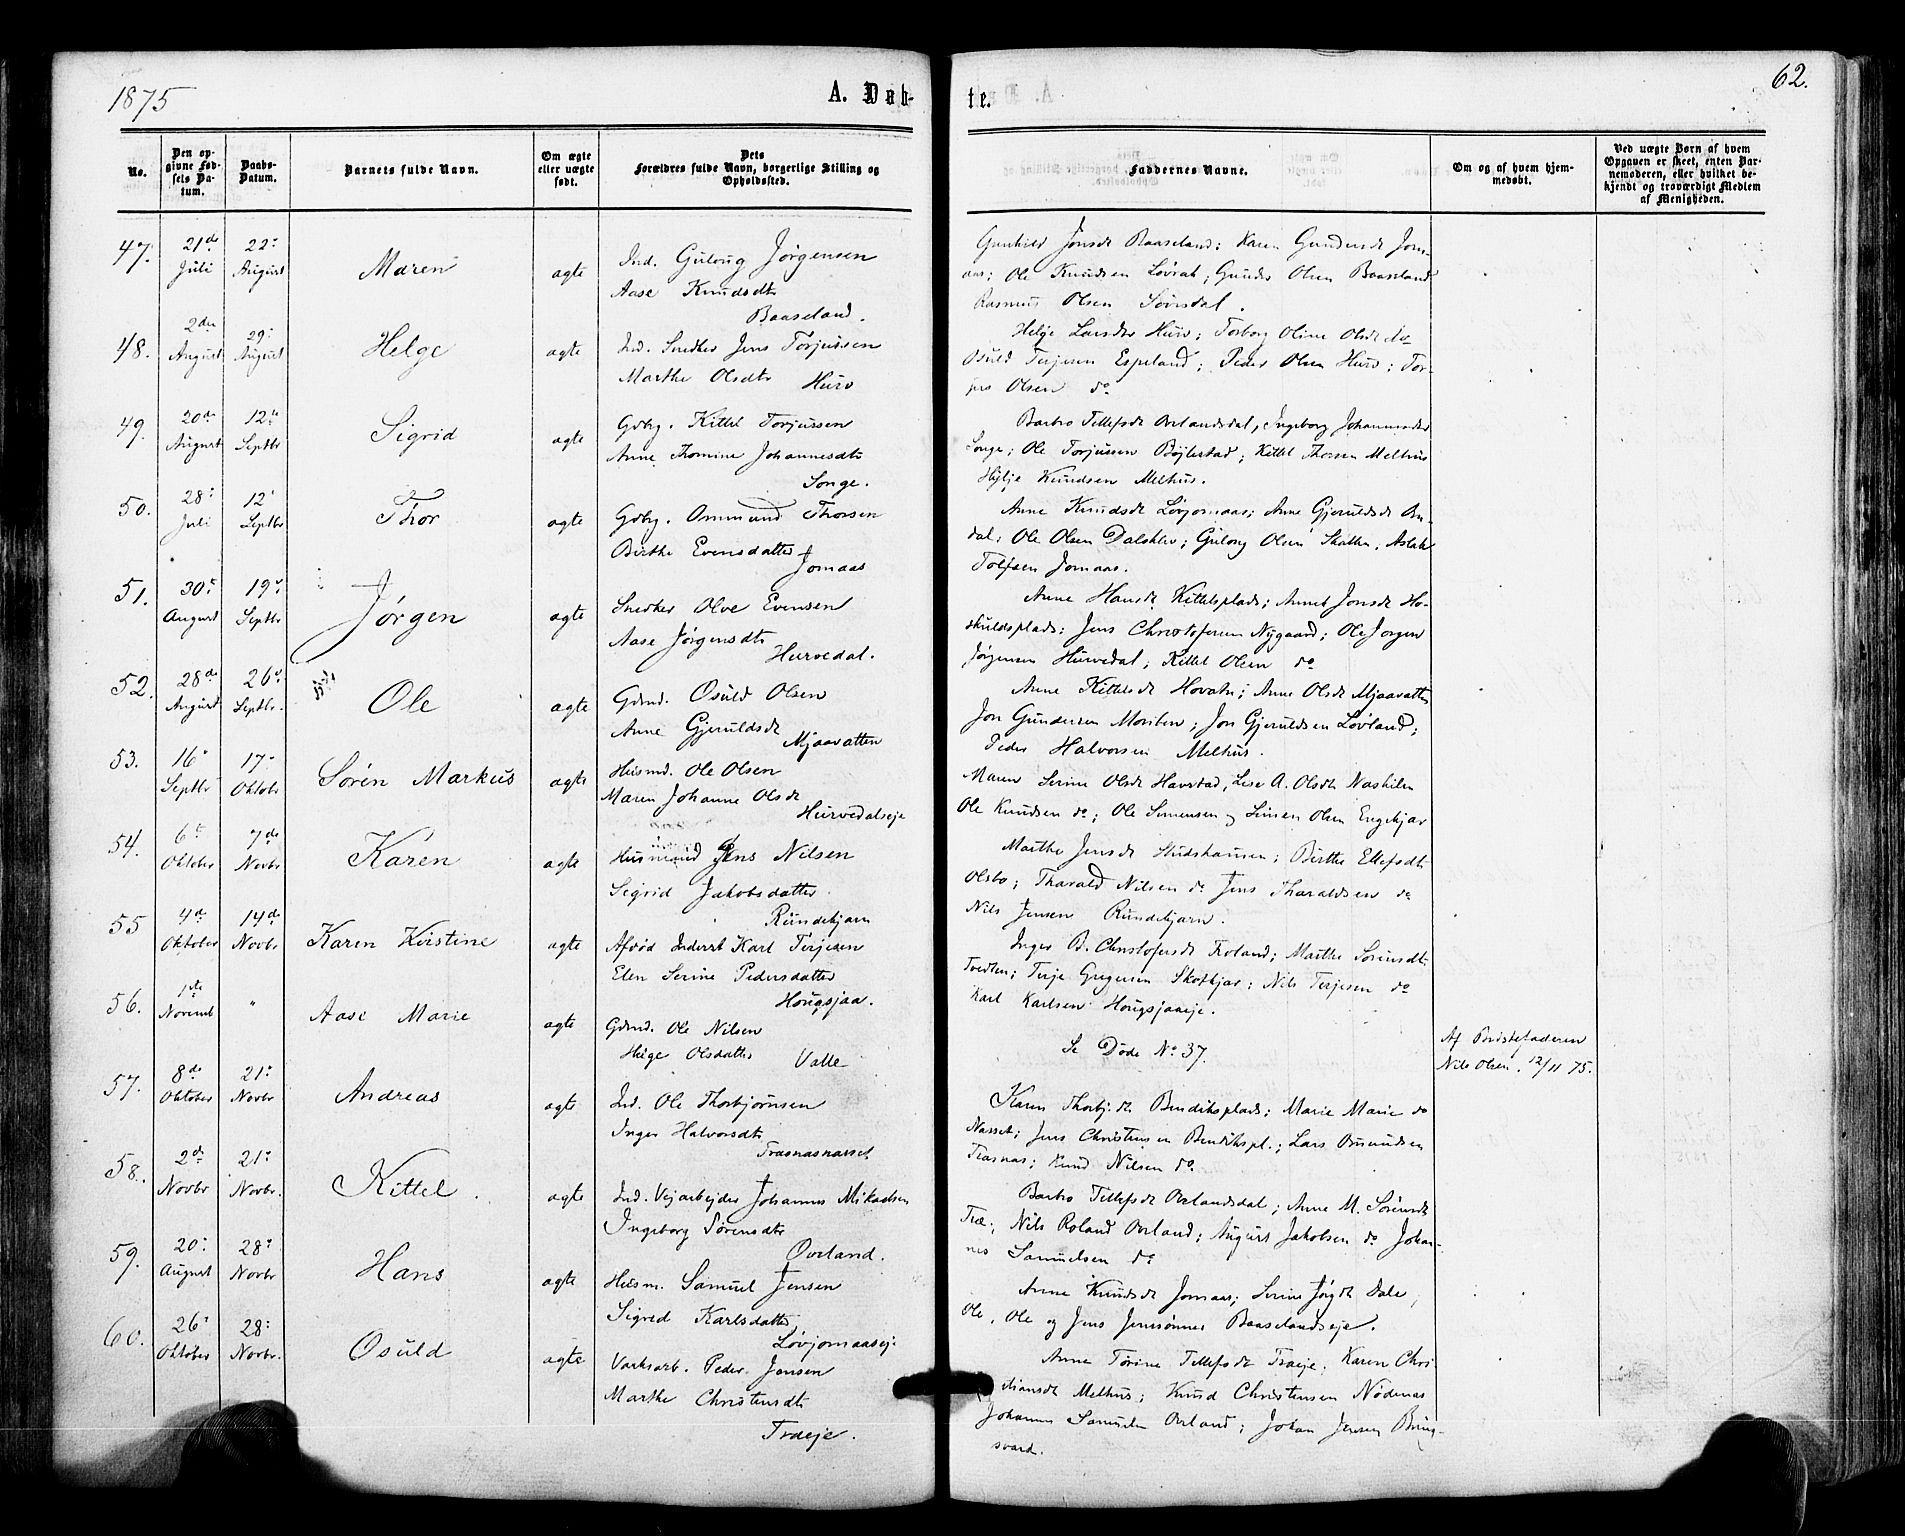 1875
A. Døb-
te.
62.
No.
Den op-
givne Fød-
sels Da-
tum.
Daabs-
Datum.
Barnets fulde Navn.
Om ægte
eller uægte
født.
Dets
Forældres fulde Navn, borgerlige Stilling og
Opholdssted.
Faddernes Navne.
Om og af hvem hjem-
medøbt.
Ved uægte Børn af hvem
Opgaven er skeet, enten Bar-
nemoderen, eller hvilket be-
kjendt og troværdigt Medlem
af Menigheden.
47.
21de Juli
22: August
Maren
ægte
Ind. Guloug Jørgensen
Aase Knudsdtr
Baaseland.
Gunhild Jonsdt Baaseland; Karen Gundersdt Jom-
aas; Ole Knudsen Løvrak, Gunder Olsen Baaseland
Rasmus Olsen
48.
2den August
29: August
Helge
ægte
Ind. Snedker Jens Torjussen
Marthe Olsdtr Hurv
Helje Larsdtr Hurv; Torborg Oline Olsdt do
Osuld Terjesen Espeland; Peder Olsen Hurv; Tor-
jus Olsen do
49.
20de August
12te Septbr
Sigrid
ægte
Gdbr. Kittel Torjussen
Anne Thomine Johannesdtr
Songe.
Barbro Tellefsdt Ovelandsdal, Ingeborg Johannesdtr
Songe; Ole Torjussen Bøylestad; Kittel Thorsen Melhus
Knudsen Melhus.
50.
28: Juli
12' Septbr
Thor
ægte
Gdbr. Ommund Thorsen
Birthe Evensdatter
Jomaas
Anne Knudsdt Løvjomaas; Anne Gjeruldsdt Bu-
dal; Ole Olsen Dalsklev; Gulong Olsen Skatten, Aslak
Tolfsen Jomaas.
51.
30te August
19de Septbr
Jørgen
ægte
Snedker Olve Evensen
Aase Jørgensdtr
Hurvedal.
Anne Hansdt Kittelsplads; Anne Jonsdt Ho-
skuldsplads; Jens Christofersen Nygaard; Ole Jørgen
Jørgensen Hurvedal; Kittel Olsen do
52.
28de August
26de Septbr.
Ole
ægte
Gdmd. Osuld Olsen
Anne Gjeruldsdt
Mjaavatten
Anne Kittelsdt Hovatn; Anne Olsdt Mjaavatten
Jon Gundersen Moriben; Jon Gjeruldsen Løvland;
Peder Halvorsen Melhus.
53.
16' Septbr
17- Oktobr
Sørén Markus
ægte
Husmd. Ole Olsen
Maren Johanne Olsdt
Hurvedalseje
Maren Serine Olsdt Havstad, Lise A. Olsdt Naskilen
Ole Knudsen do; Ole Simensen og Simen Olsen Engekjær
54.
6te Oktober
7de Novbr
Karen
ægte
Husmand Jens Nilsen
Segrid Jakobsdatter
Rundekjærn
Marthe Jensdt Studshausen; Birthe Ellefsdt
Olsbo; Tharald Nilsen do Jens Tharaldsen do
Nils Jensen Rundekjærn.
55
4de Oktober
14de Novbr
Karen Kirstine
ægte
Afdød Inderst Karl Terjesen
Elen Serine Pedersdatter
Hougsjaa.
Inger B. Christofersdt Froland; Marthe Sørensdt
Tvedten; Terje Gregersen Skotkjær; Nils Terjesen do
Karl Karlsen Hougsjaaeje.
56.
1ste Novemb
"
Aase Marie
ægte
Gdmd. Ole Nilsen
Helge Olsdatter Valle
Se Døde No 37.
Af Bestefaderen
Nils Olsen. 12/11 75.
57.
8de Oktober
21: Novbr
Andreas
ægte
Ind. Ole Thorbjørnsen
Inger Halvorsdtr
Træsnæsnæsset
Karen Thorbj.dtr Bendiksplads; Marie Marie do
Næsset; Jens Christensen Bendikspl.; Lars Osmundsen
Træsnæs; Knud Nilsen do.
58.
2de Novbr
21: Novbr.
Kittel.
ægte
Ind. Vejarbejder Johannes Mikaelsen
Ingeborg Sørensdtr
Oveland.
Barbro Tellefsdt Ovelandsdal; Anne M. Sørensdt
Træ; Nils Roland Oveland; August Jakobsen do Johan-
nes Samuelsen do
59.
20: August
28: Novbr
Hans
ægte
Husm. Samuel Jensen
Sigred Karlsdatter
Løvjomaaseje
Anne Knudsdt Jomaas; Serine Jørgdt Dale,
Ole, Ole og Jens Jenssønner Baaselandseje.
60.
26' Oktober
28: Novbr.
Osuld
ægte
Værksarb. Peder Jensen
Marthe Christensdtr
Træeje.
Anne Torine Tellefsdt Træeje, Karen Chri-
stiansdt Melhus; Knud Christensen Nødenæs
Johannes Samuelsen Oveland; Johan Jensen Bring-
sværd.